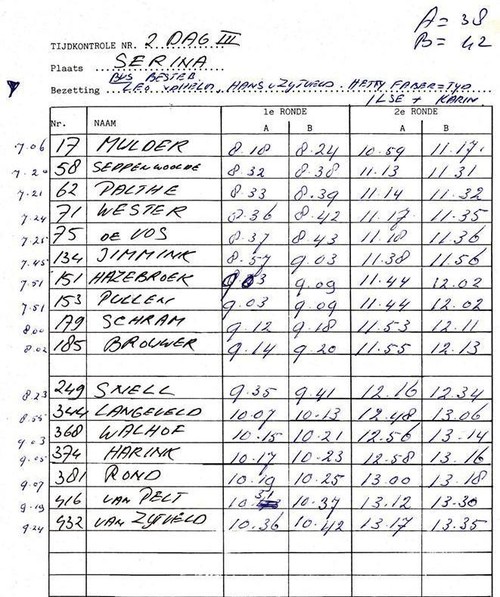 A = 38
B = 42
TIJDKONTROLE NR. 2 DAG III
Plaats SERINA
BUS BESTEB.
Bezetting LEO HANS v ZYTVELD HETTY FABER = TYD
ILSE + KARIN
1e RONDE 2e RONDE
Nr. NAAM A B A B
7.06 17 MULDER 8.18 8.24 10.59 11.17
7.20 58 SEPPENWOOLDE 8.32 8.38 11.13 11.31
7.21 62 PALTHE 8.33 8.39 11.14 11.32
7.24 71 WESTER 8.36 8.42 11.17 11.35
7.25 75 DE VOS 8.37 8.43 11.18 11.36
7.45 134 JIMMINK 8.57 9.03 11.38 11.56
7.51 151 HAZEBROEK 9.03 9.09 11.44 12.02
7.51 153 PULLEN 9.03 9.09 11.44 12.02
8.00 179 SCHRAM 9.12 9.18 11.53 12.11
8.02 185 BROUWER 9.14 9.20 11.55 12.13
8.23 249 SNELL 9.35 9.41 12.16 12.34
8.55 344 LANGEVELD 10.07 10.13 12.48 13.06
9.03 368 WALHOF 10.15 10.21 12.56 13.14
9.05 374 HARINK 10.17 10.23 12.58 13.16
9.07 381 ROND 10.19 10.25 13.00 13.18
9.19 416 VAN PELT 10.31 10.37 13.12 13.30
9.24 432 VAN ZYTVELD 10.36 10.42 13.17 13.35